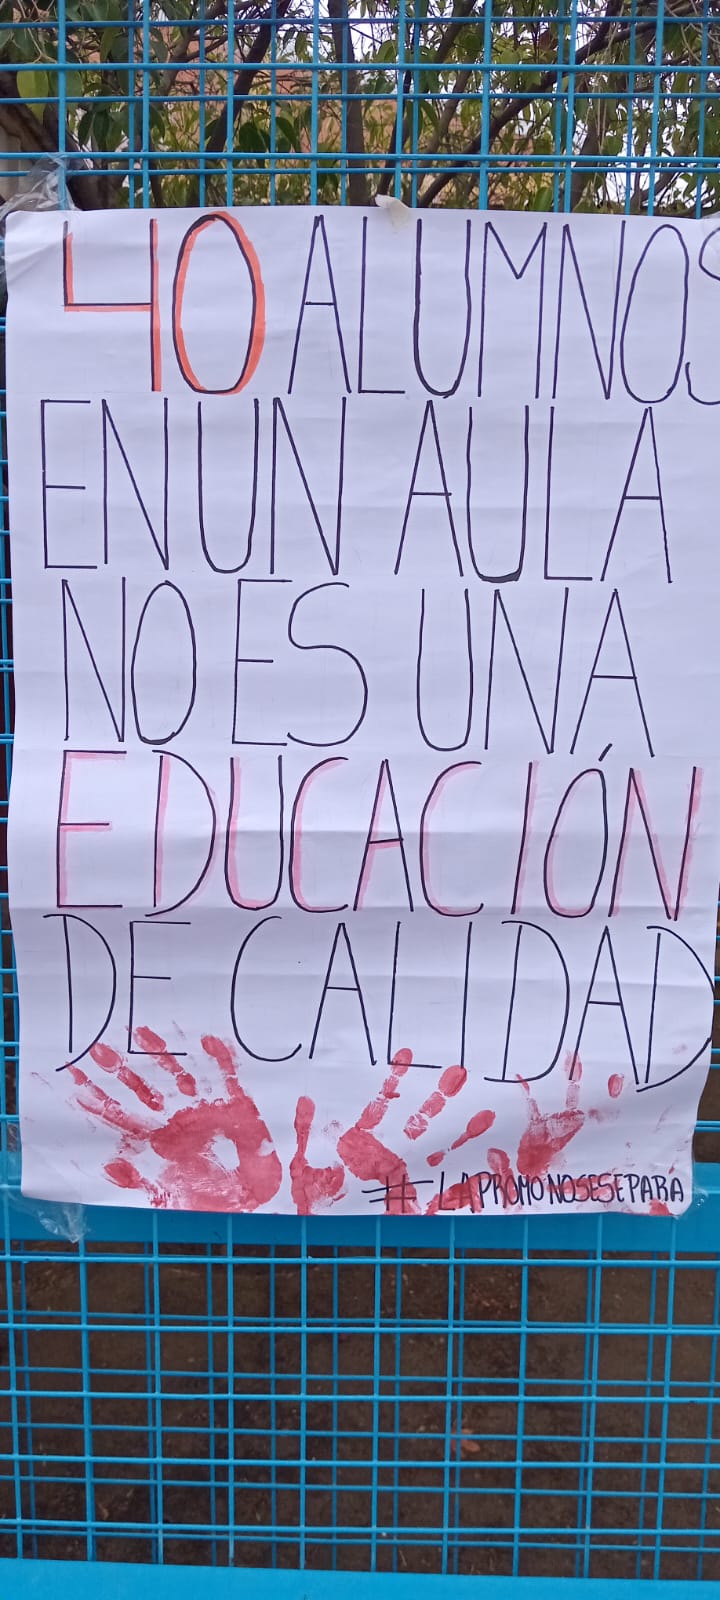 40 ALUMNOS
EN UN AULA
NO ES UNA
EDUCACIÓN
DE CALIDAD
#LAPROMONOSESEPARA